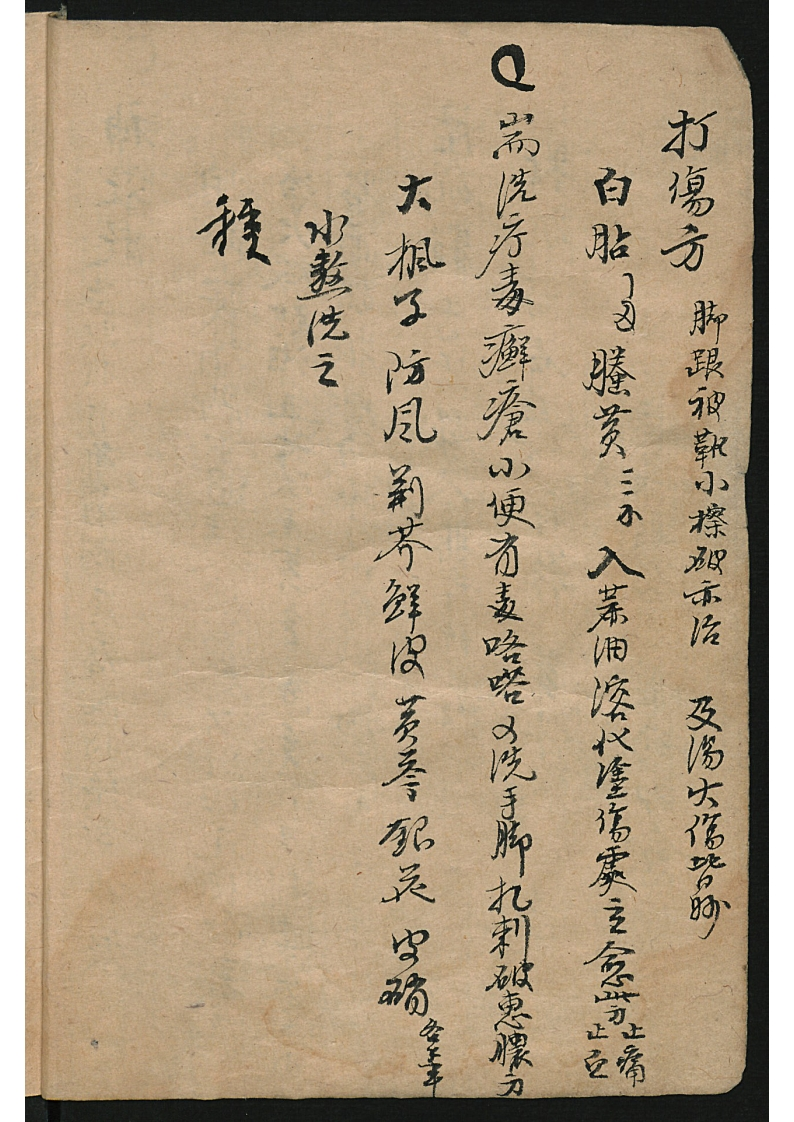 打傷方 脚跟被靴小擦破亦治 及湯火傷皆妙
白胎 螣黄三分入茶油溶化塗傷處立愈此方止痛止血
耑洗疔毒癬瘡小便有毒咯嗒又洗手脚扎刺破患膿方
大楓子 防風 荆芥 鮮皮 黄芩 銀花 皮硝 各三半
水熬洗之
種